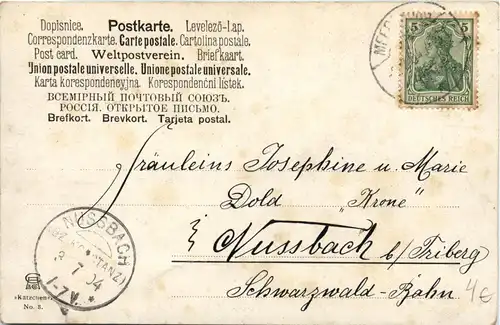 Dopisnica. Postkarte. Levelező-Lap.
Correspondenzkarte. Carte postale. Cartolina postale.
Post card. Weltpostverein. Briefkaart.
Union postale universelle. Unione postale universale.
Karta korespondencyjna. Korespondenční lístek.
ВСЕМІРНЫЙ ПОЧТОВЫЙ СОЮЗЪ.
РОССІЯ. ОТКРЫТОЕ ПИСЬМО.
Brefkort. Brevkort. Tarjeta postal.
5 5
DEUTSCHES REICH
Fräuleins Josephine u. Marie
Dold „Krone“
Nussbach b/Triberg
Schwarzwald-Bahn
4€
NUSSBACH
7 04
1-7V.
»Kätzchen«
No. 8.